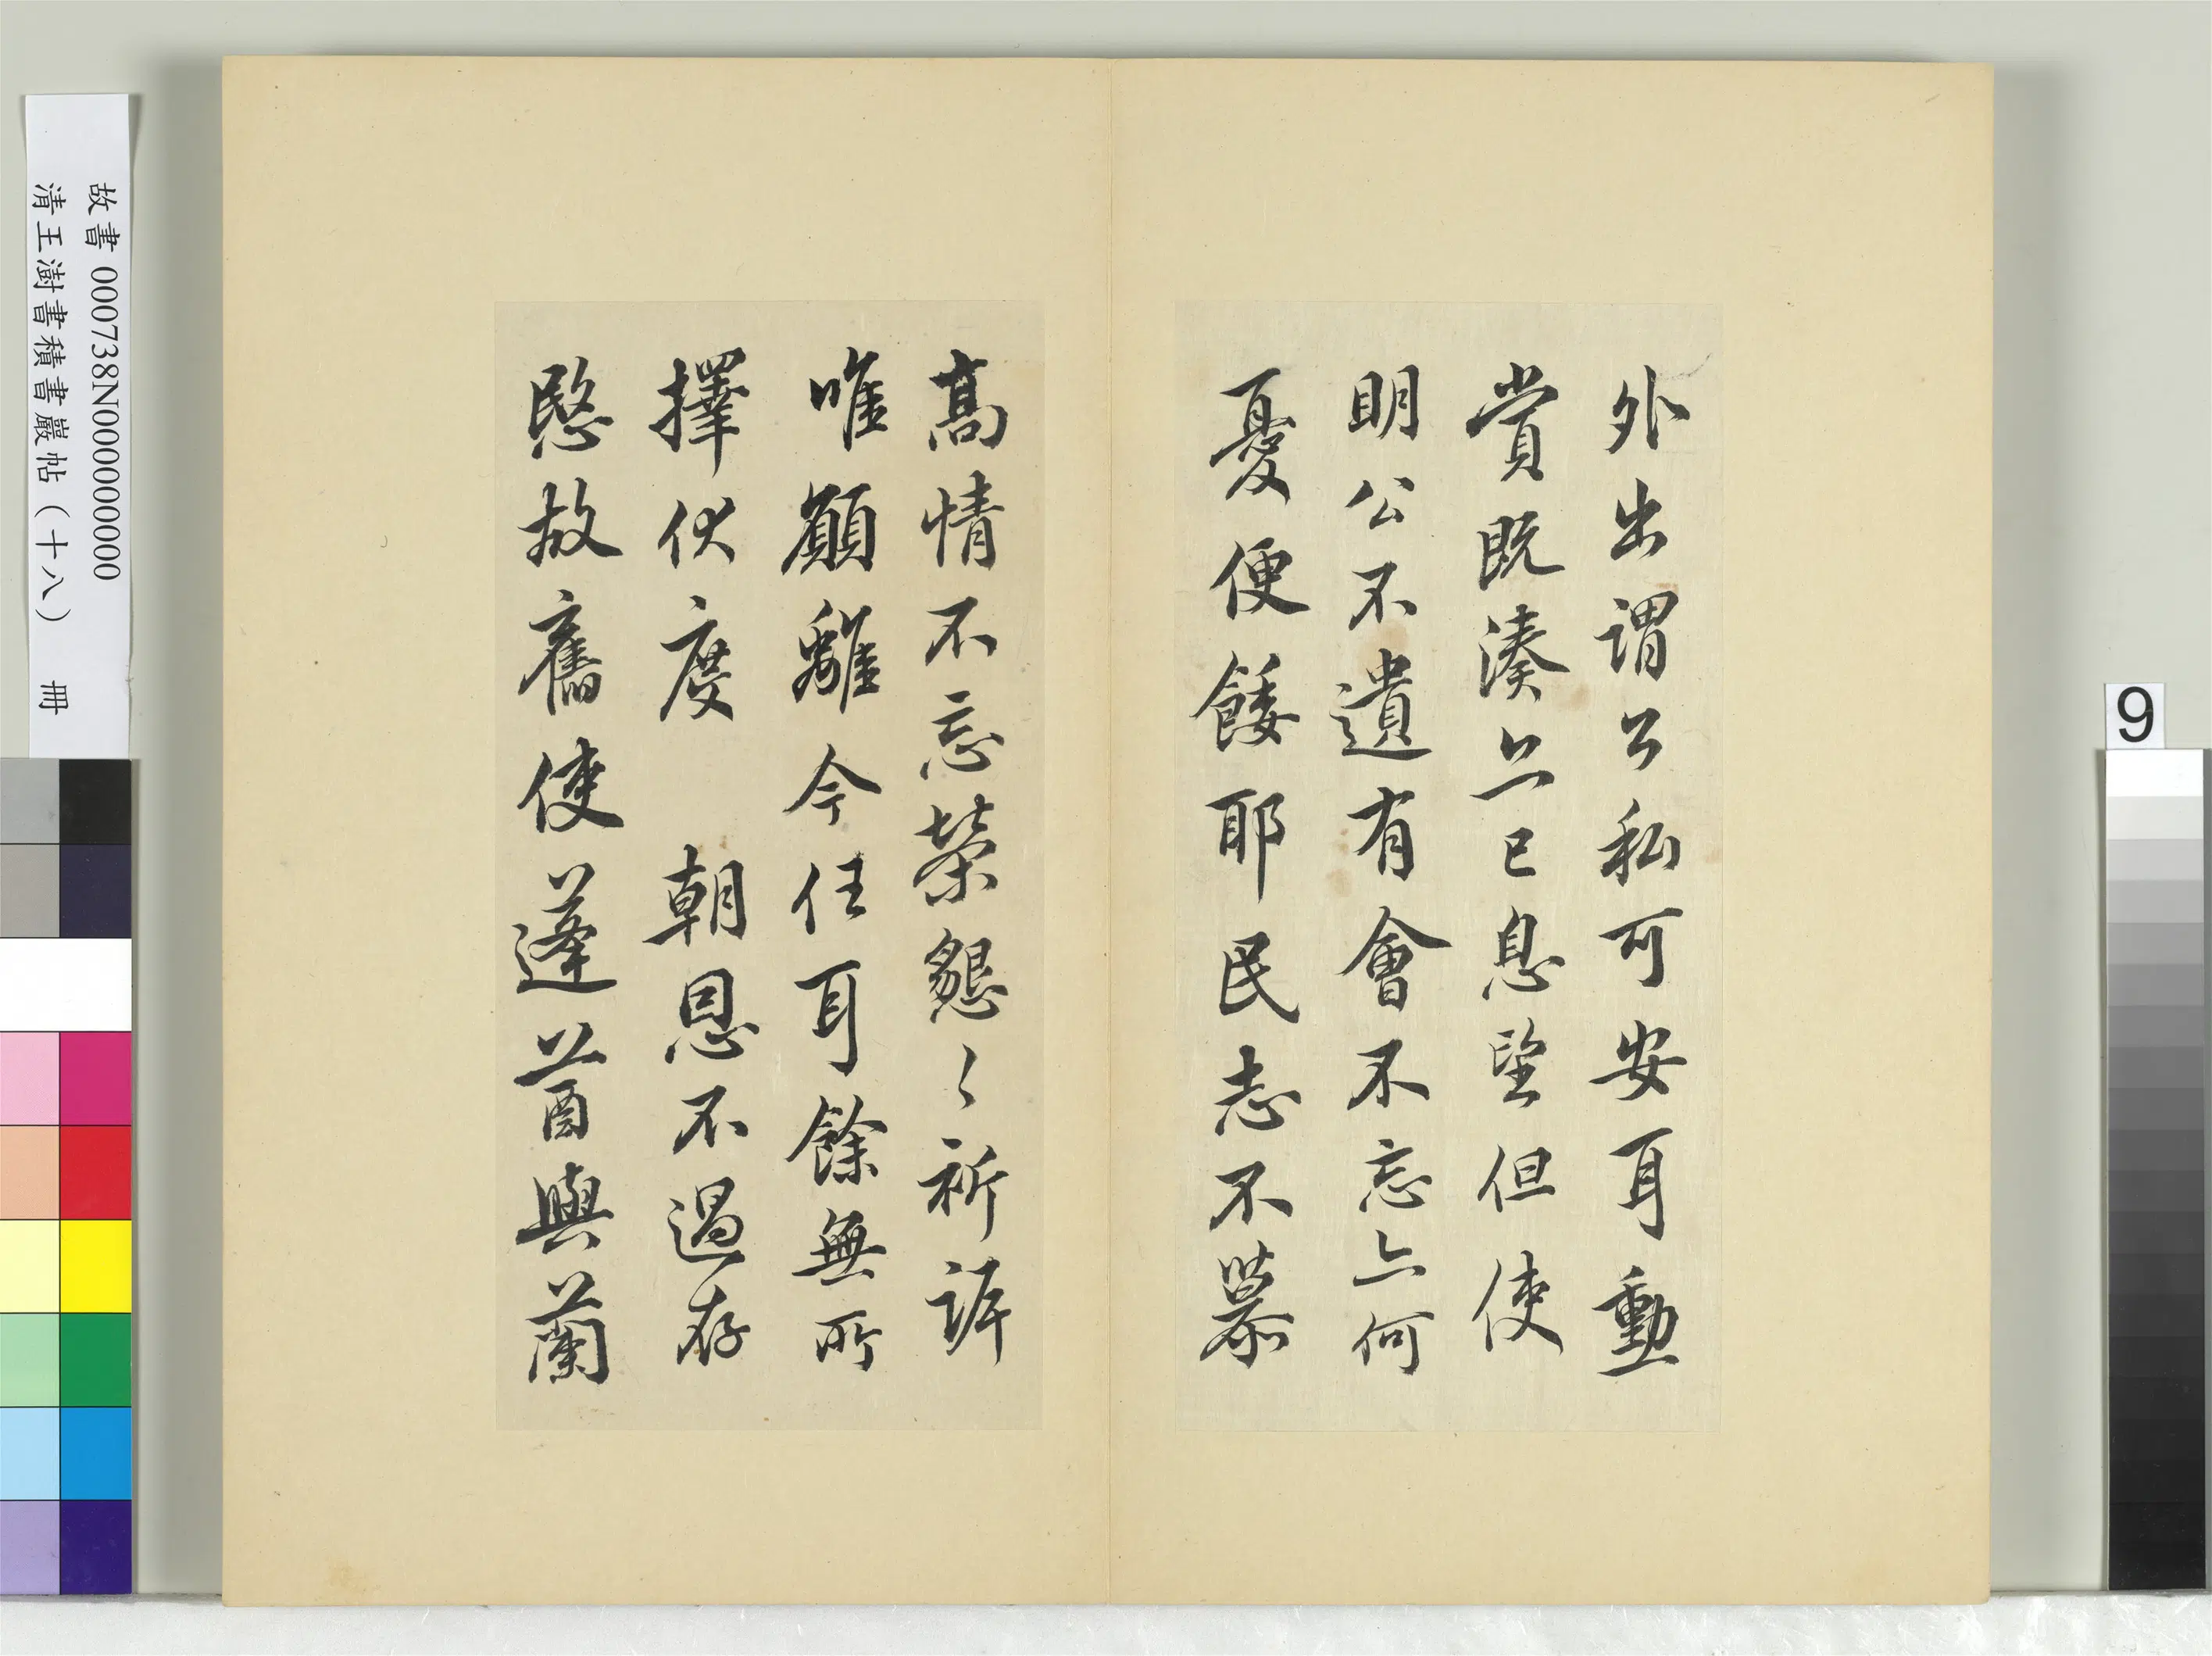 外出謂公私可安耳勳
賞既湊亦已息望但使
明公不遺有會不忘亦何
憂便餧耶民志不慕
高情不忘榮懇〻祈訴
唯願離今任耳餘無所
擇伏度 朝恩不遏存
愍故舊使蓬荂與蘭
故書 000738N000000000
清王澍書積書巖帖(十八) 冊
9